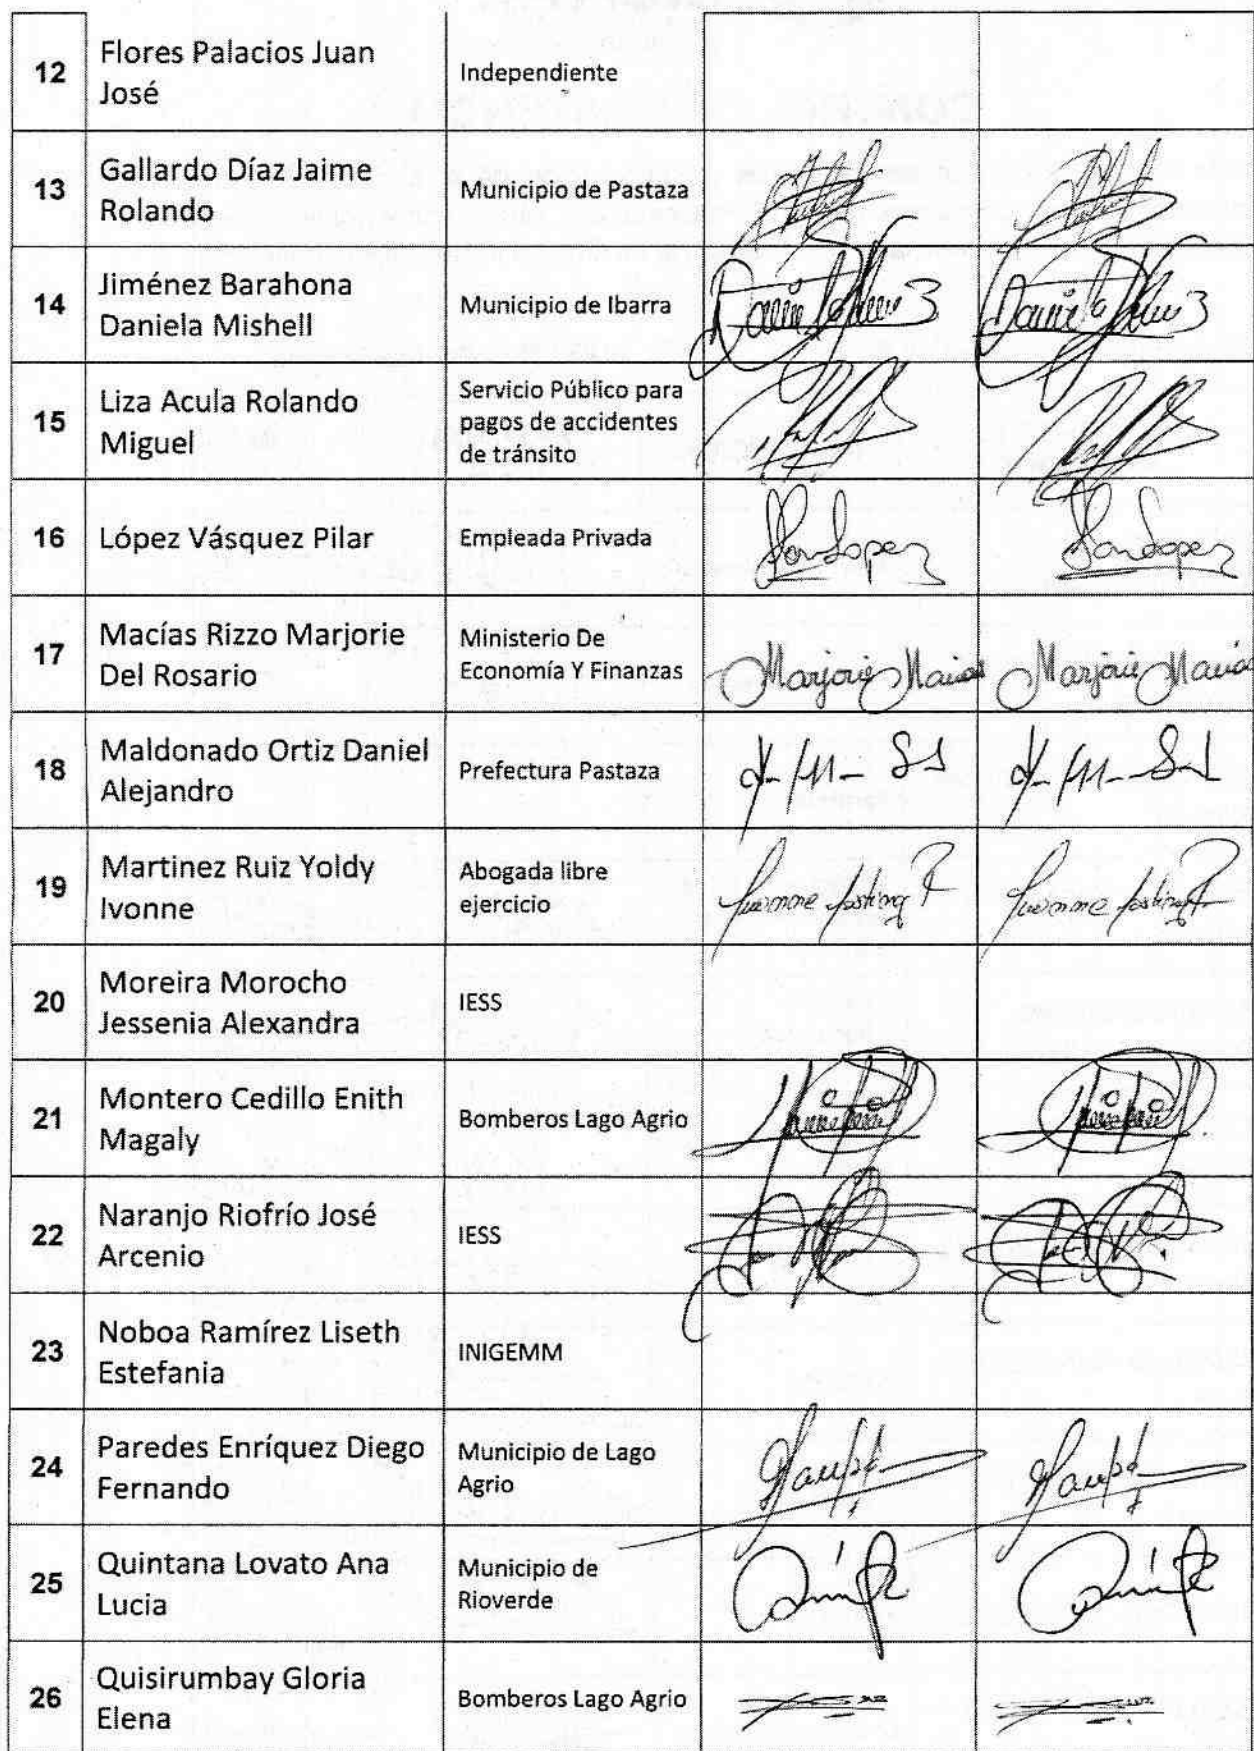 12 Flores Palacios Juan
José
Independiente
13 Gallardo Díaz Jaime
Rolando
Municipio de Pastaza
14 Jiménez Barahona
Daniela Mishell
Municipio de Ibarra
15 Liza Acula Rolando
Miguel
Servicio Público para
pagos de accidentes
de tránsito
16 López Vásquez Pilar
Empleada Privada
17 Macías Rizzo Marjorie
Del Rosario
Ministerio De
Economía Y Finanzas
Marjorie Macías Marjorie Macías
18 Maldonado Ortiz Daniel
Alejandro
Prefectura Pastaza
19 Martinez Ruiz Yoldy
Ivonne
Abogada libre
ejercicio
20 Moreira Morocho
Jessenia Alexandra
IESS
21 Montero Cedillo Enith
Magaly
Bomberos Lago Agrio
22 Naranjo Riofrío José
Arcenio
IESS
23 Noboa Ramírez Liseth
Estefania
INIGEMM
24 Paredes Enríquez Diego
Fernando
Municipio de Lago
Agrio
25 Quintana Lovato Ana
Lucia
Municipio de
Rioverde
26 Quisirumbay Gloria
Elena
Bomberos Lago Agrio